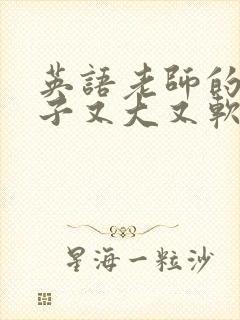 英語老師的
子又大又軟
星海一粒沙